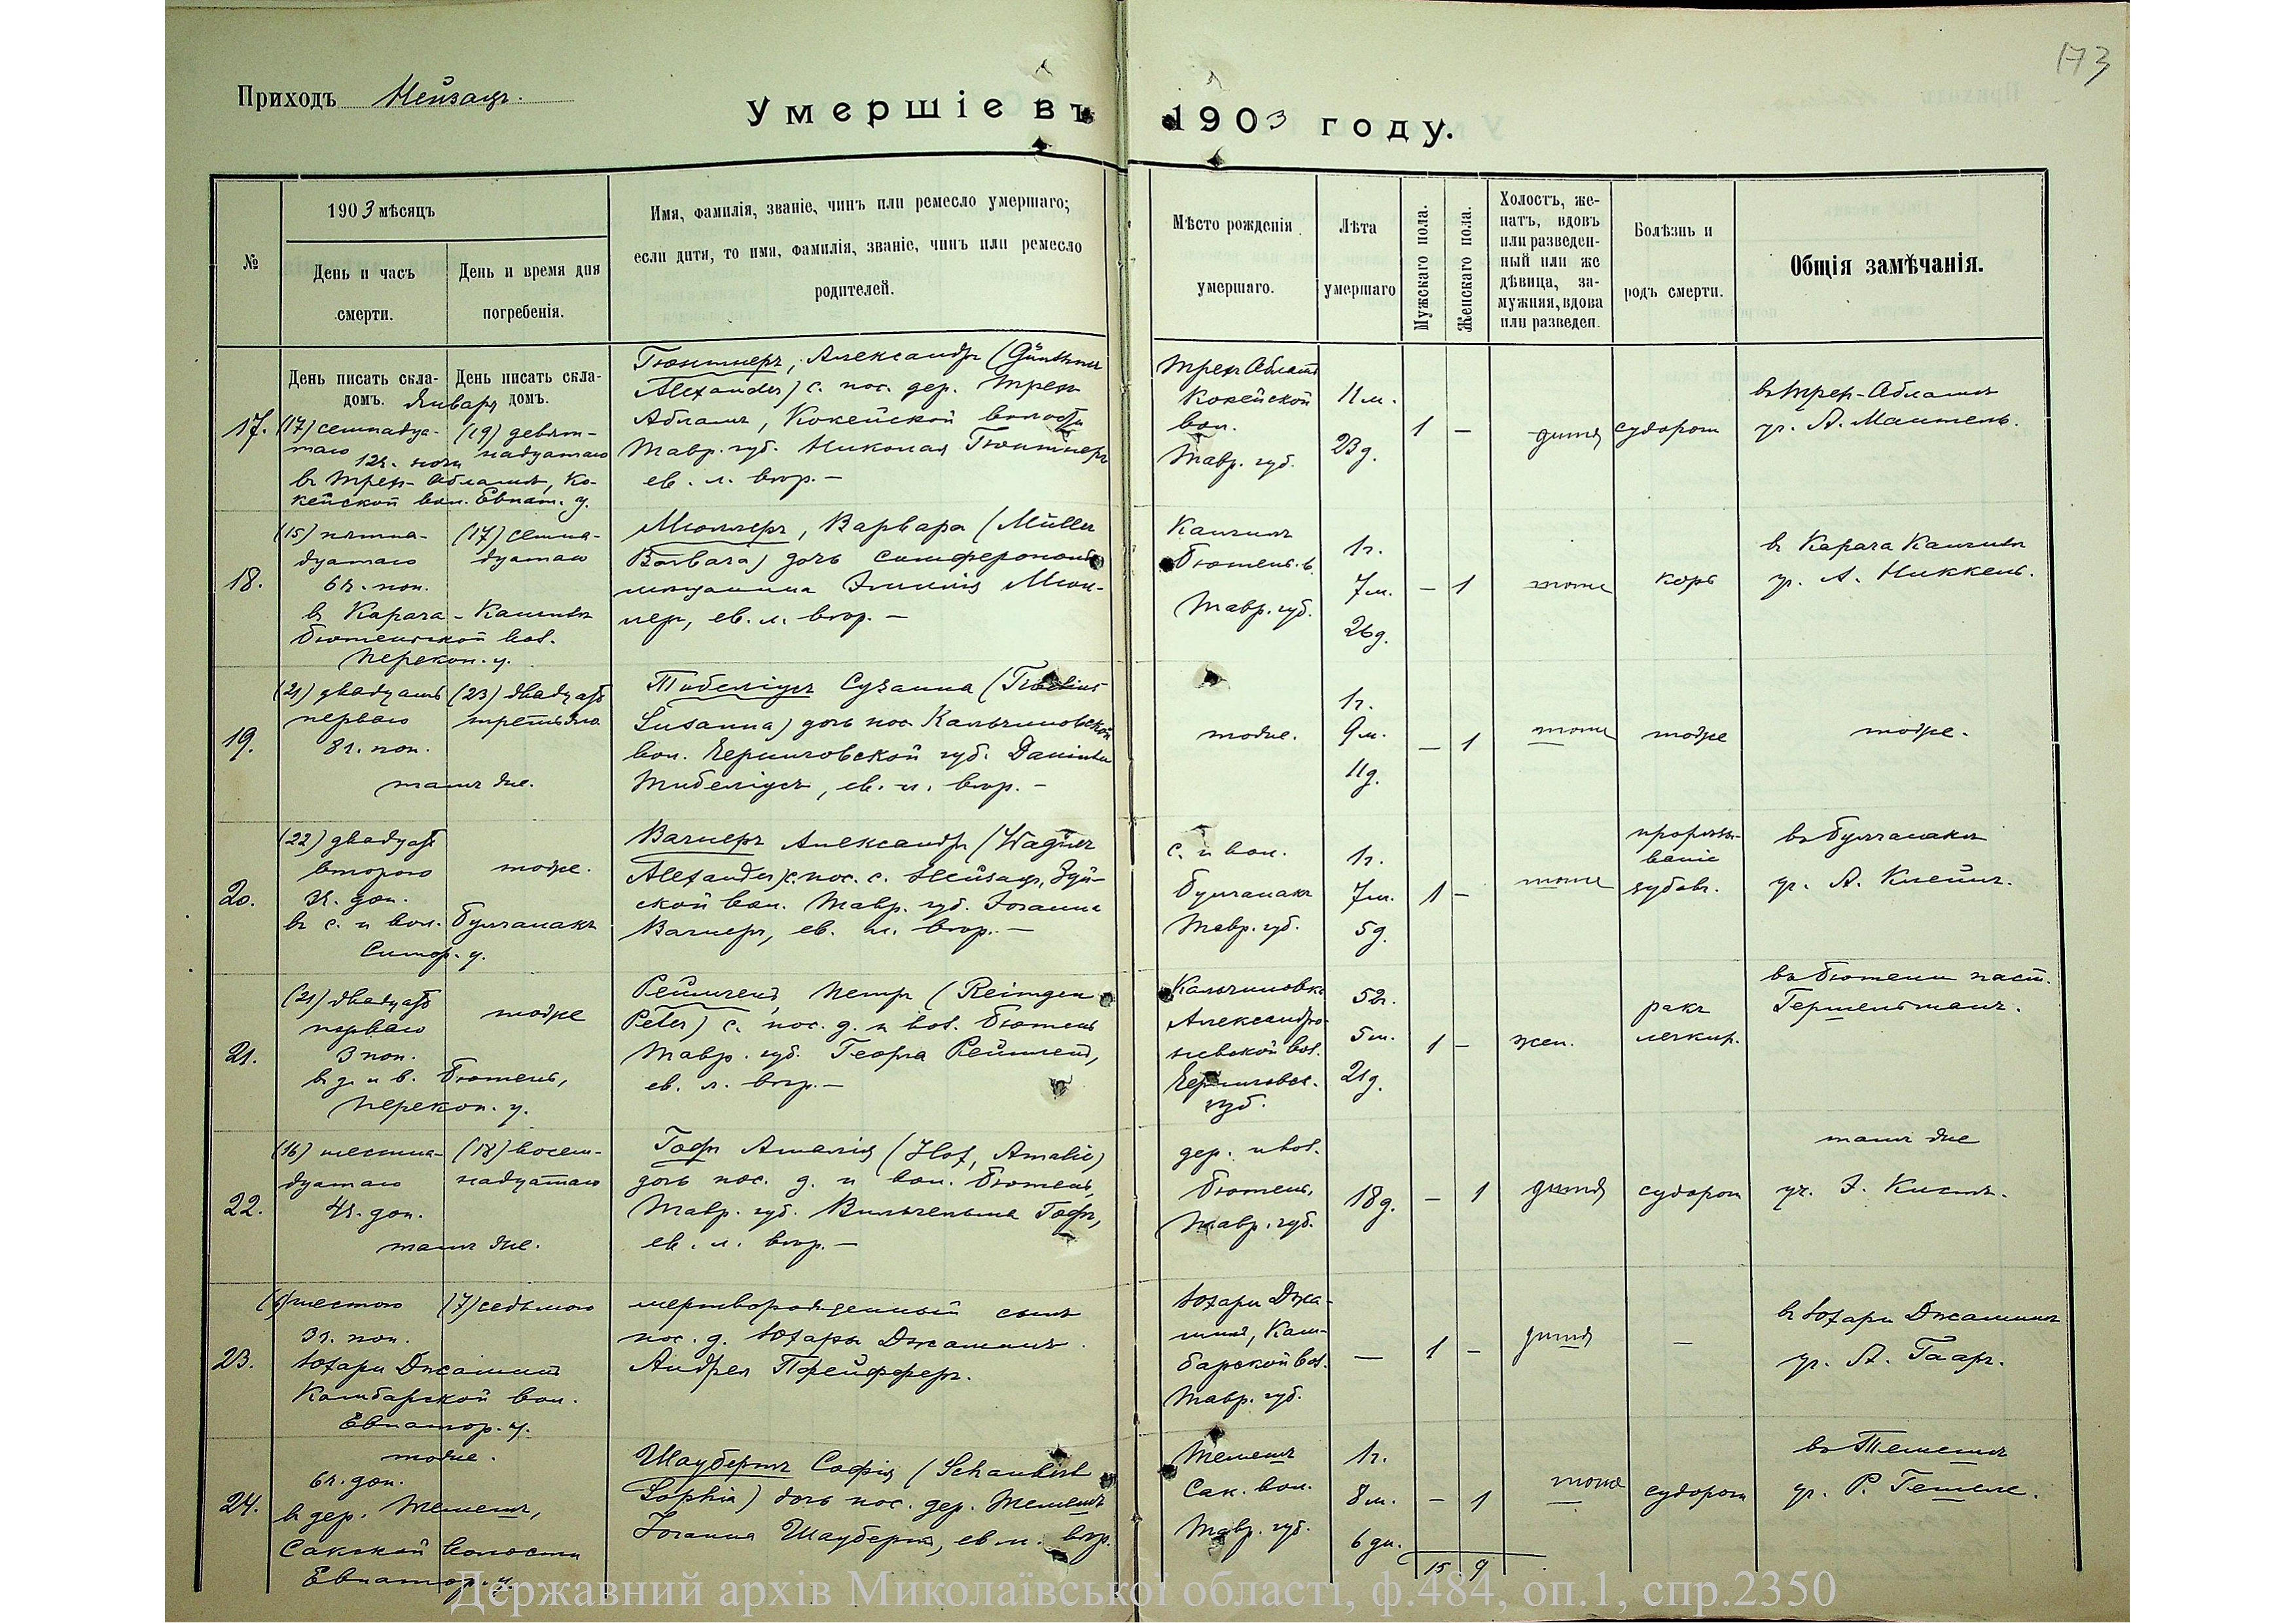 173
Приходъ Нейзацъ.
Умершіе въ 1903 году.
№
1903 мѣсяцъ
День и часъ
смерти.
День и время дня
погребенія.
Имя, фамилія, званіе, чинъ или ремесло умершаго;
если дитя, то имя, фамилія, званіе, чинъ или ремесло
родителей.
Мѣсто рожденія
умершаго.
Лѣта
умершаго
Мужскаго пола.
Женскаго пола.
Холостъ, же-
натъ, вдовъ
или разведен-
ный или же
дѣвица, за-
мужняя, вдова
или разведен.
Болѣзнь и
родъ смерти.
Общія замѣчанія.
День писать скла-
домъ.
День писать скла-
домъ.
Января
17.
(17) семнадца-
таго
12ч. ночи
въ Трех-Абламъ, Ко-
кейской вол. Евпат. у.
(19) девят-
надцатаго
Гюнтнеръ, Александръ (Günthner
Alexander) с. пос. дер. Трех
Абламъ, Кокейской волости
Тавр. губ. Николая Гюнтнеръ
ев. л. втр. –
Трех Абламъ
Кокейской
вол.
Тавр. губ.
11 м.
23 д.
1
–
дитя
судороги
въ Трех-Абламъ
уч. А. Мантель.
18.
(15) пятна-
дцатаго
6ч. поп.
въ Карача-Кангилъ
Бютенской вол.
Перекоп. у.
(17) семна-
дцатаго
Мюллеръ, Варвара (Müller
Barbara) дочь симферопольс
мѣщанина Эмилія Мюл-
леръ, ев. л. втр. –
Кангилъ
Бютень. в.
Тавр. губ.
1г.
7м.
26д.
–
1
тоже
корь
въ Карача Кангилъ
уч. А. Никкель.
19.
(21) двадцать
перваго
8ч. поп.
тамъ же.
(23) двадцать
третьяго
Тибеліусъ Сузанна (Tibelius
Susanna) дочь пос. Кальчиновской
вол. Черниговской губ. Даніила
Тибеліусъ, ев. л. втр. –
тоже.
1г.
9м.
11д.
–
1
тоже
тоже
тоже.
20.
(22) двадцать
второго
3ч. доп.
въ с. и вол. Булганакъ
Симф. у.
тоже.
Вагнеръ Александръ (Wagner
Alexander) с. пос. с. Нейзацъ, Зуй-
ской вол. Тавр. губ. Іоганна
Вагнеръ, ев. л. втр. –
с. и вол.
Булганакъ
Тавр. губ.
1г.
7м.
5д.
1
–
тоже
прорѣзы-
ваніе
зубовъ.
въ Булганакъ
уч. А. Клейнъ.
21.
(21) двадцать
перваго
3 поп.
въ д. и в. Бютень,
Перекоп. у.
тоже
Реймгенъ, Петръ (Reimgen
Peter) с. пос. д. и вол. Бютень
Тавр. губ. Георга Реймгенъ,
ев. л. втр. –
Кальчиновка
Александро-
невской вол.
Черниговск.
губ.
52г.
5м.
21д.
1
–
жен.
ракъ
легкихъ.
въ Бютени паст.
Гершельманъ.
22.
(16) шестна-
дцатаго
4ч. доп.
тамъ же.
(18) восем-
надцатаго
Гофъ Амалія (Hof, Amalie)
дочь пос. д. и вол. Бютень,
Тавр. губ. Вильгельма Гофъ,
ев. л. втр. –
дер. и вол.
Бютень,
Тавр. губ.
18д.
–
1
дитя
судороги
тамъ же
уч. Э. Кистъ.
23.
(6) шестого
3ч. поп.
Юхари Джаминъ
Камбарской вол.
Евпатор. у.
(7) седьмого
мертворожденный сынъ
пос. д. Юхары Джаминъ
Андрея Пфейфферъ.
Юхари Джа-
минъ, Кам-
барской вол.
Тавр. губ.
–
1
–
дитя
–
въ Юхари Джаминъ
уч. А. Гааръ.
24.
тоже.
6ч. доп.
въ дер. Темешъ,
Сакской волости
Евпатор. у.
Шаубертъ Софія (Schaubert
Sophia) дочь пос. дер. Темешъ
Іоганна Шаубертъ, ев. л. втр.
Темешъ
Сак. вол.
Тавр. губ.
1г.
8м.
6дн.
–
1
тоже
судороги
въ Темешъ
уч. Р. Гешеле.
15 9
Державний архів Миколаївської області, ф.484, оп.1, спр.2350